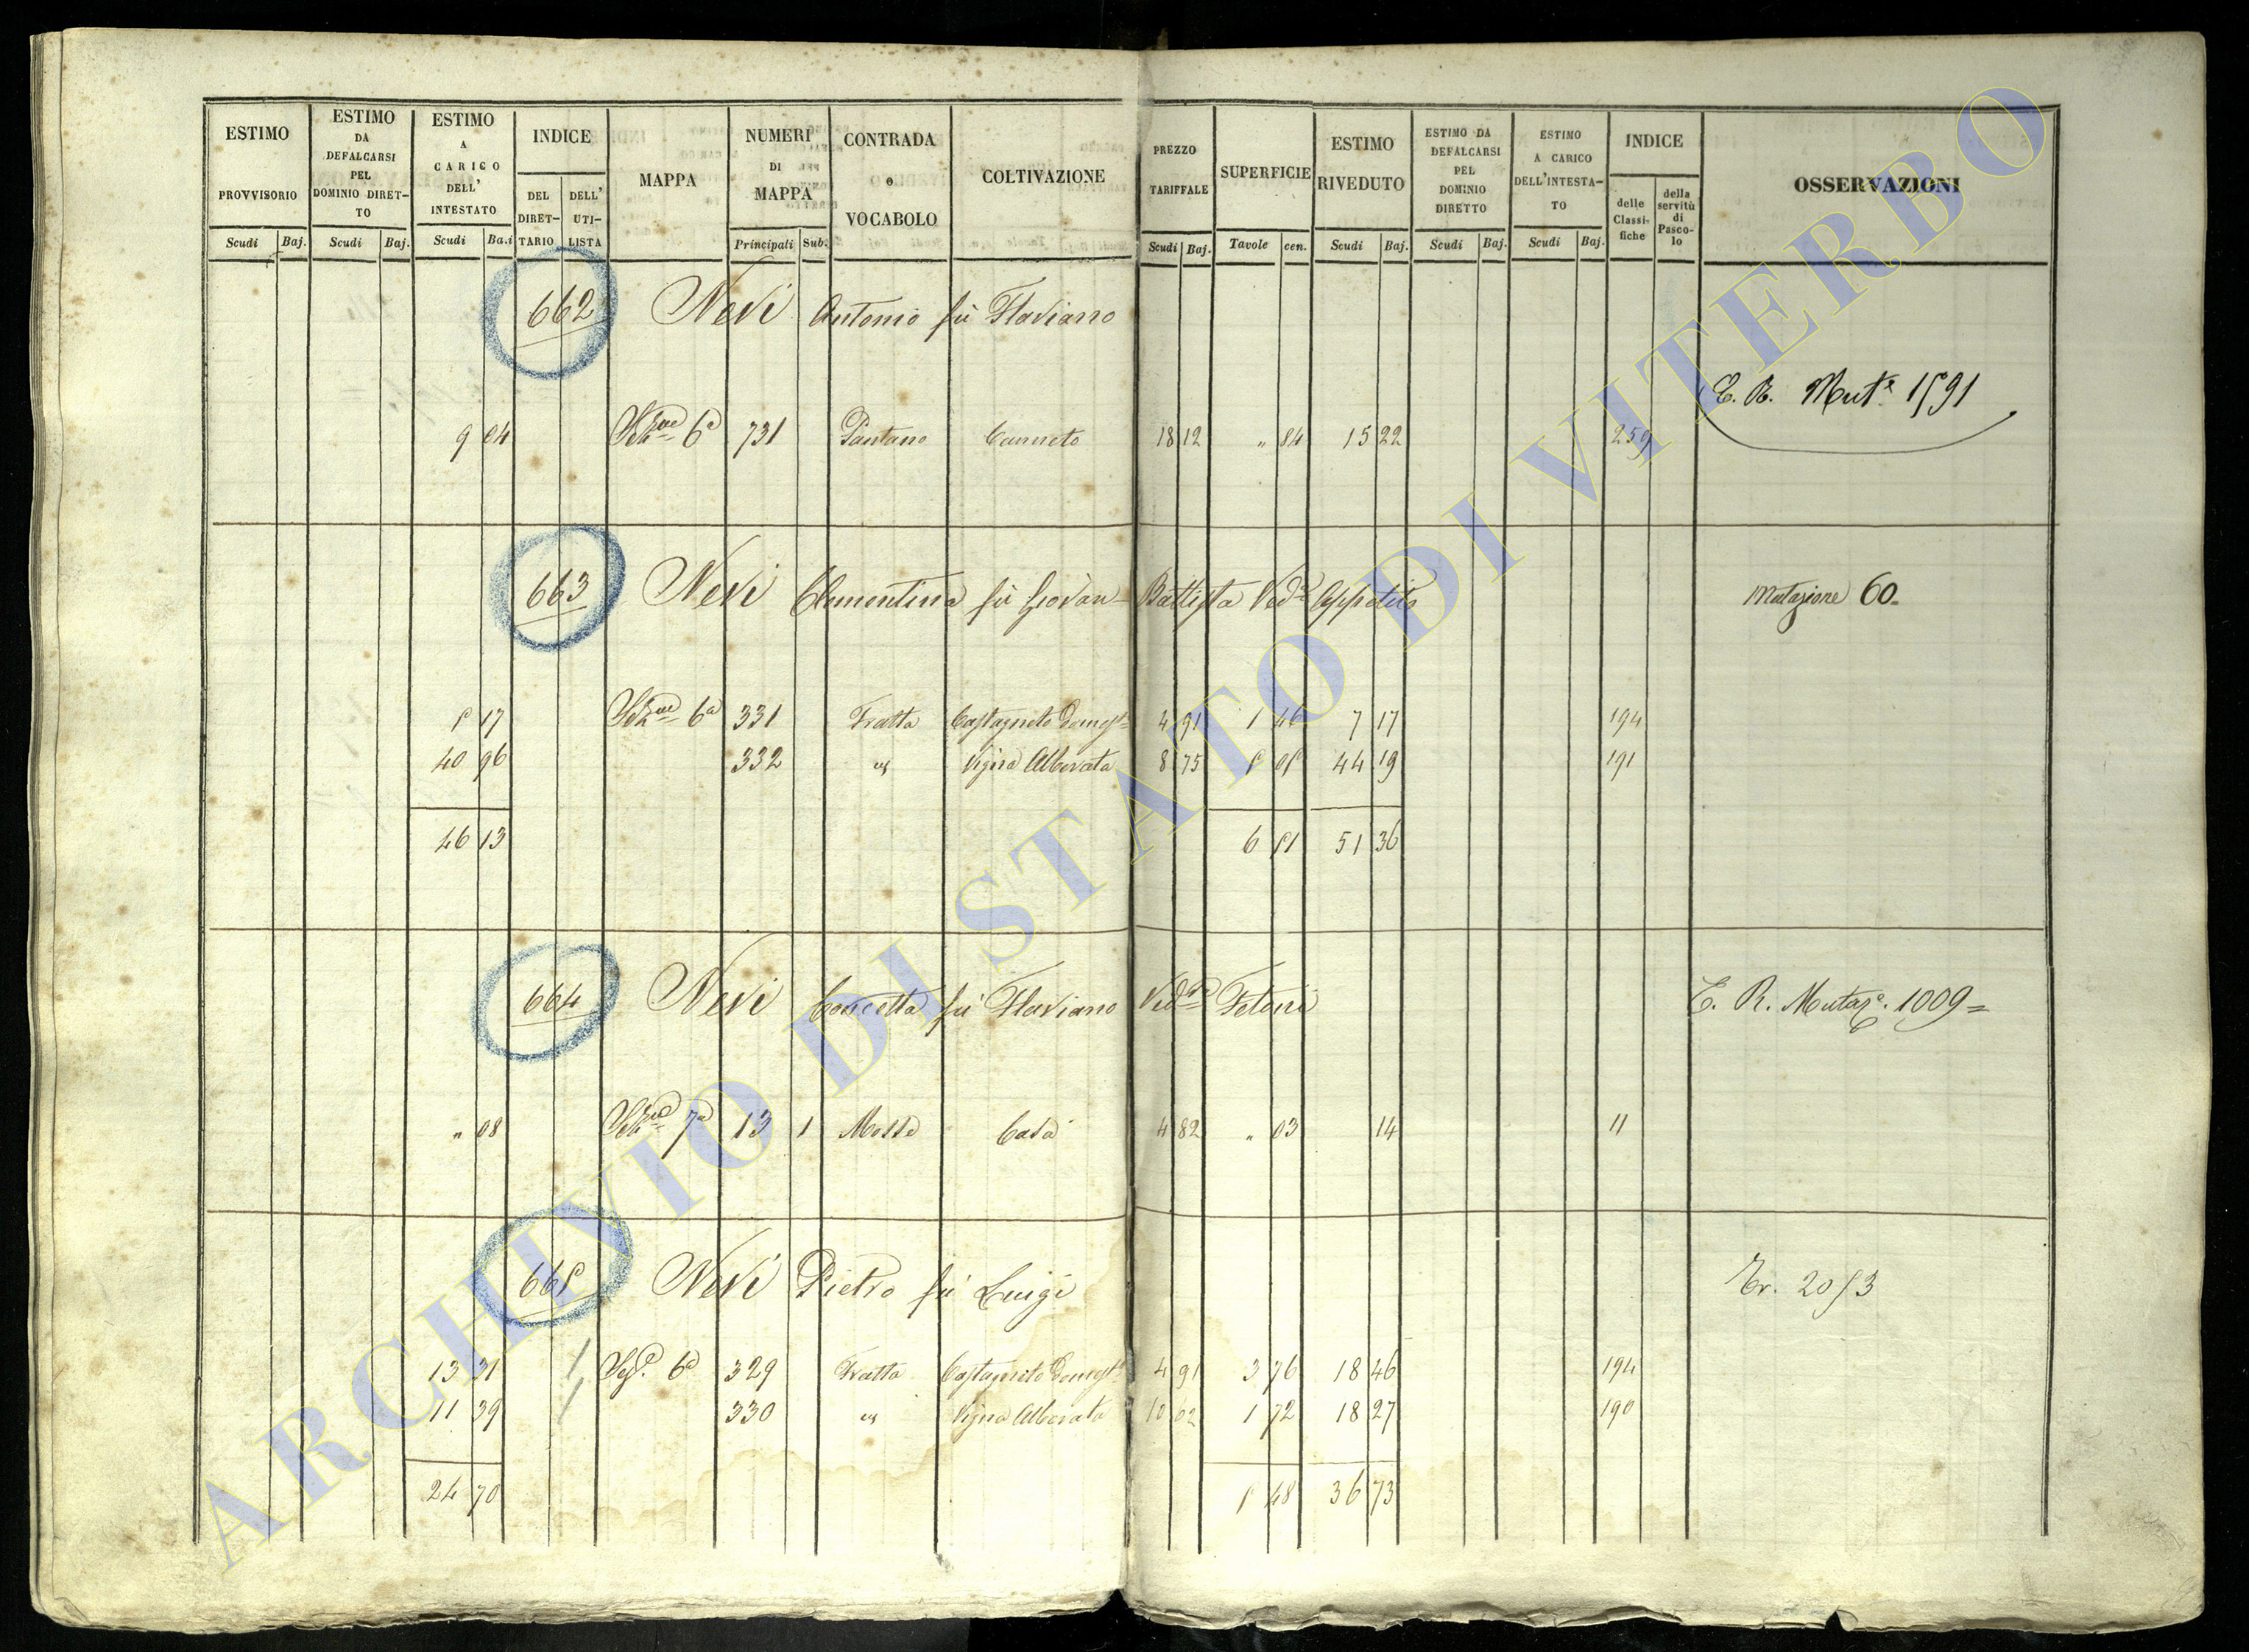 ESTIMO PROVVISORIO Scudi Baj.
ESTIMO DA DEFALCARSI PEL DOMINIO DIRET-TO Scudi Baj.
ESTIMO A CARICO DELL' INTESTATO Scudi Ba.i
INDICE DEL DIRET-TARIO DELL' UTI-LISTA
MAPPA
NUMERI DI MAPPA Principali Sub.
CONTRADA o VOCABOLO
COLTIVAZIONE
PREZZO TARIFFALE Scudi Baj.
SUPERFICIE Tavole cen.
ESTIMO RIVEDUTO Scudi Baj.
ESTIMO DA DEFALCARSI PEL DOMINIO DIRETTO Scudi Baj.
ESTIMO A CARICO DELL'INTESTA-TO Scudi Baj.
INDICE delle Classi-fiche della servitù di Pasco-lo
OSSERVAZIONI
662 Nevi Antonio fù Flaviano
E. R. Mut.e 1591
9 04 Sez.ne 6a 731 Pantano Canneto 18 12 " 84 15 22 259
663 Nevi Clementina fù Giovan Battista Ved.a Mutazione 60=
5 17 Sez.ne 6a 331 Fratta Castagneto Domest. 4 91 1 46 7 17 194
40 96 332 " Vigna Alberata 8 75 5 05 44 19 191
46 13 6 51 51 36
664 Nevi Concetta fù Flaviano Ved.a E. R. Mutaz.e 1009=
" 08 Sez.ne 7a 13 1 Casa 4 82 " 03 14 11
665 Nevi Pietro fù Luigi Tr. 2053
13 31 Sez.e 6a 329 Fratta Castagneto Domest. 4 91 3 76 18 46 194
11 39 330 " Vigna Alberata 10 62 1 72 18 27 190
24 70 5 48 36 73
ARCHIVIO DI STATO DI VITERBO